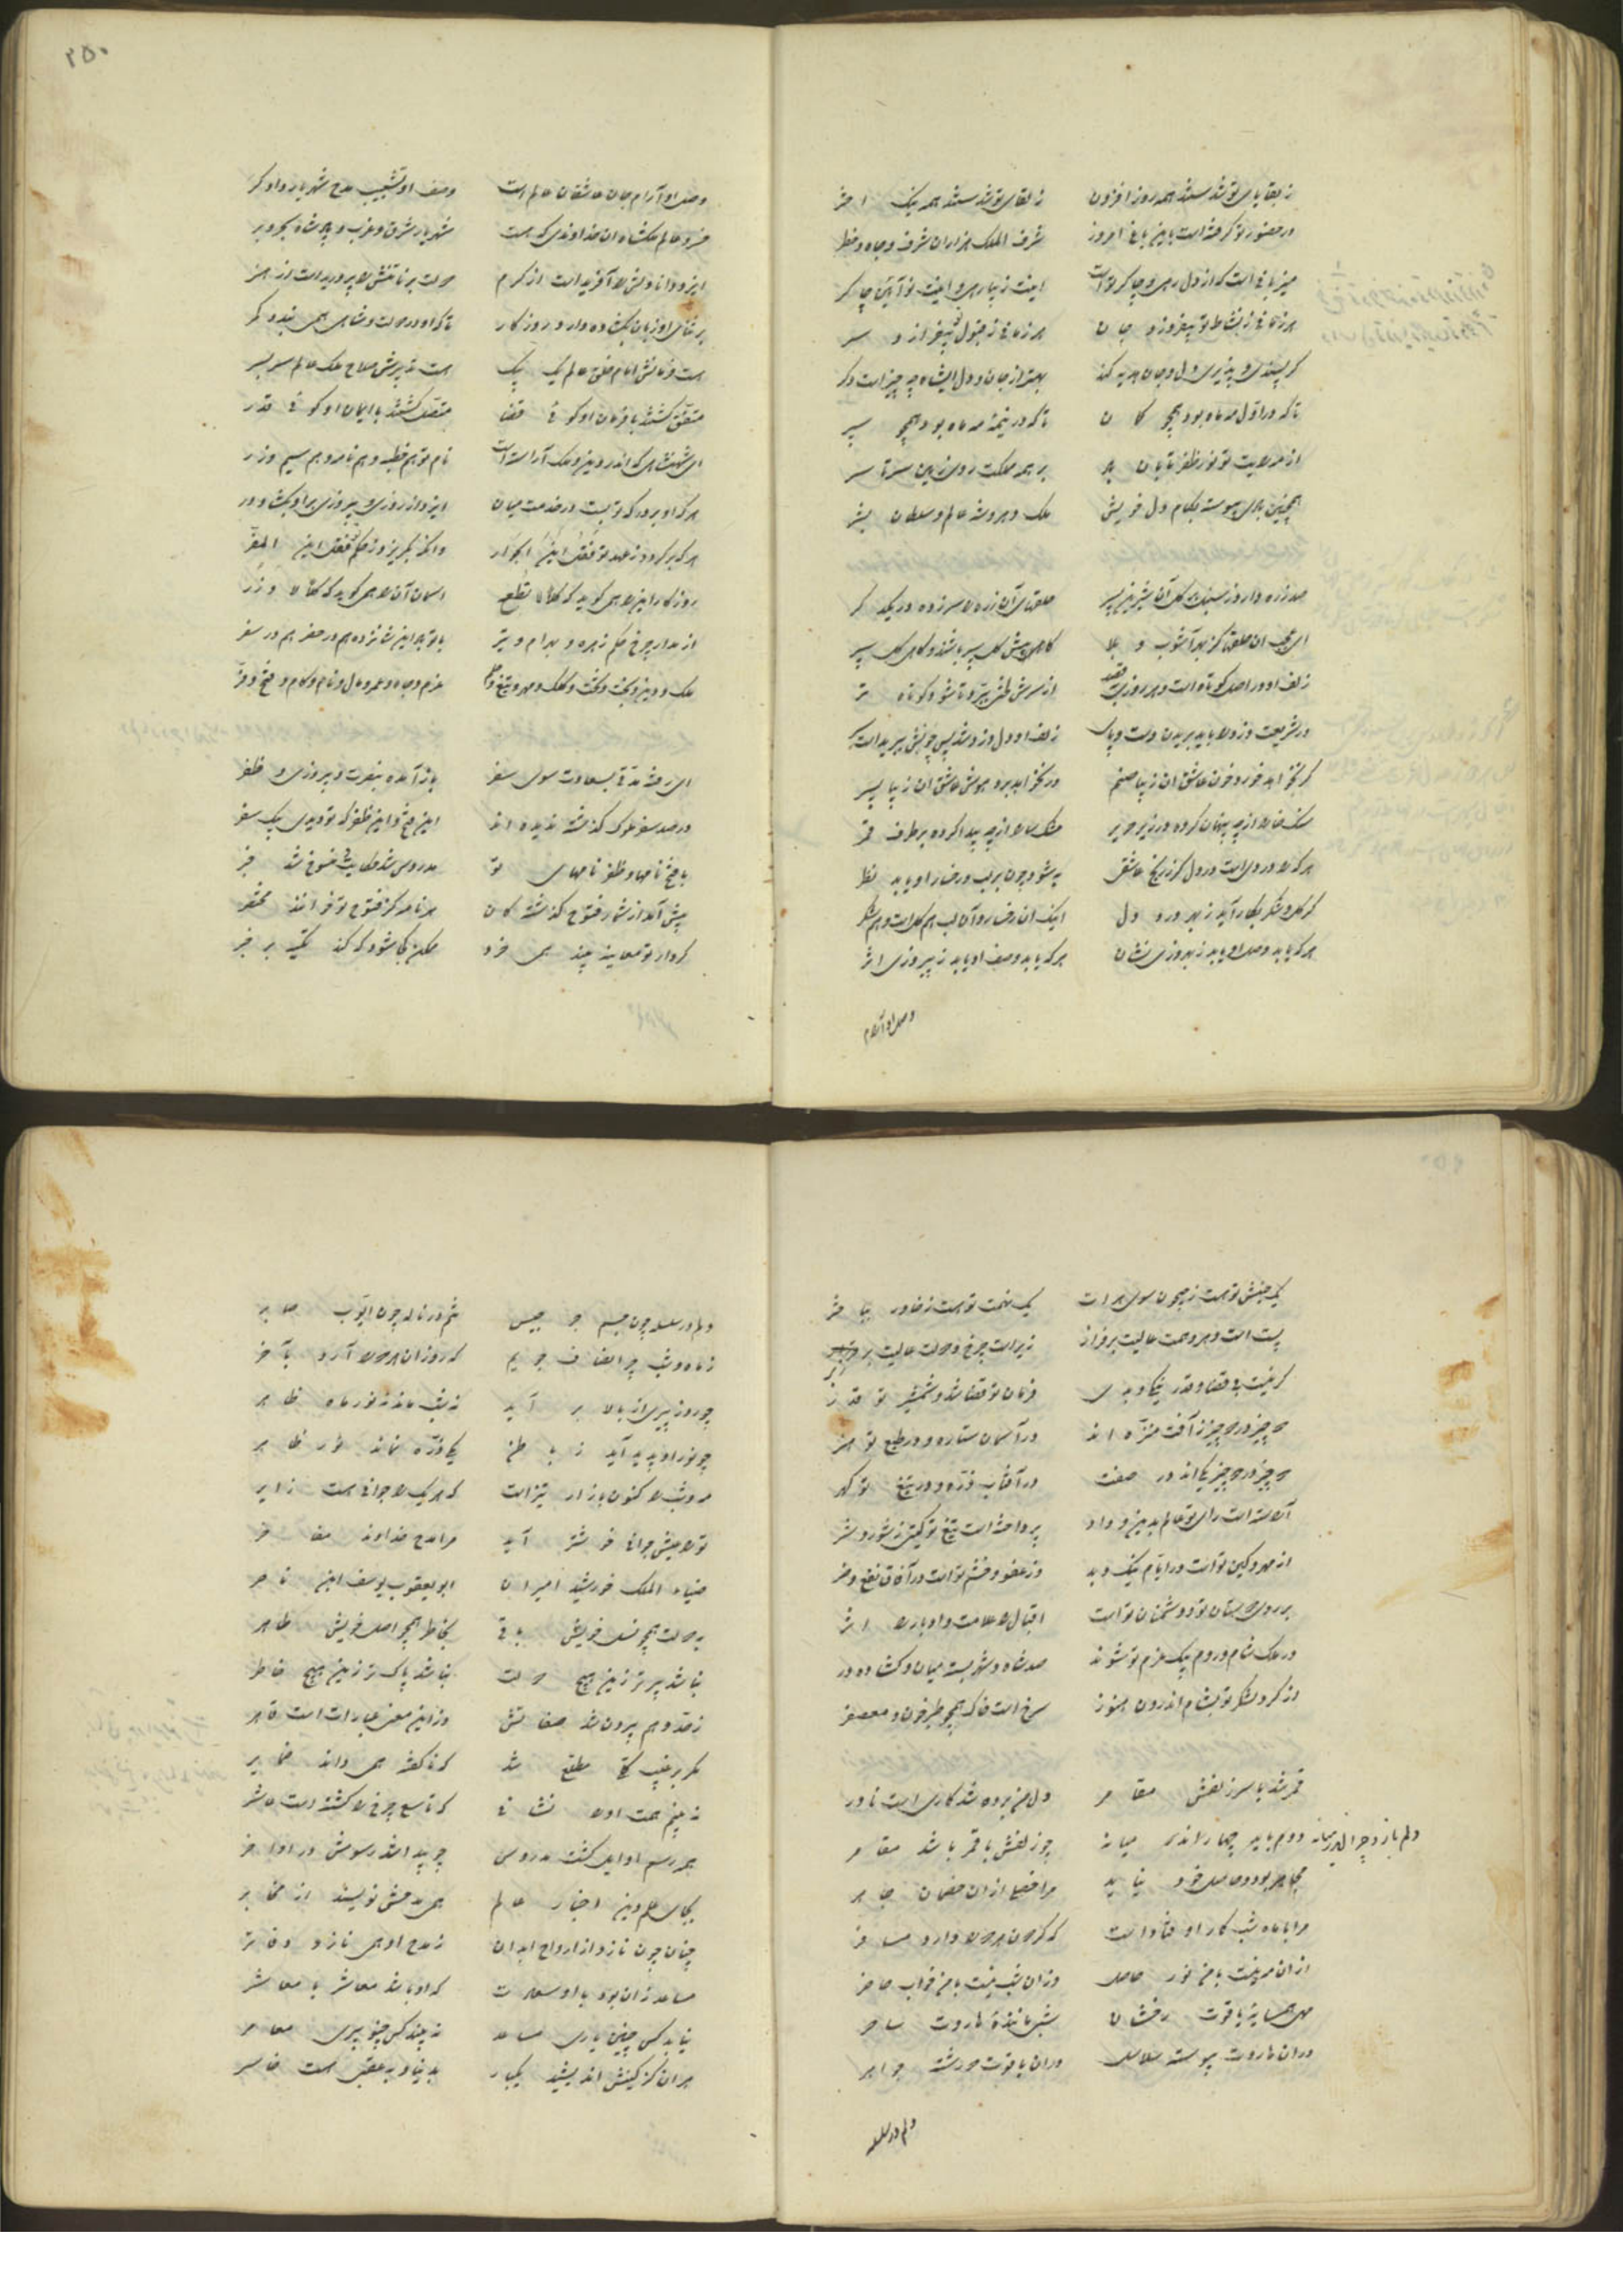 ز بقای تو شدستند همه روز افزون ز لقای تو شدستند همه نیک اختر
در حضور تو گرفته است بدین باغ امروز شرف الملک هزاران شرف و جاه و خطر
میزبانی است که از دل رهی و چاکر تو است اینت زیبا رهی و اینت نو آیین چاکر
هر زمانی ز نشاط تو بیفروزد جان هر زمانی ز قبول تو بیفرازد سر
گر پسندی و پذیری دل و جان هدیه کند بهتر از جان و دل ایشاه چه چیز است دگر
تا که در اول مه ماه بود همچو کمان تا که در نیمهٔ مه ماه بود همچو سپر
از هدایت تو نور ظفر تابان بر همه مملکت روی زمین سرتاسر
همچنین بادی پیوسته بکام دل خویش ملک و خسرو و شه عالم و سلطان بشر
صد زره دارد ز سنبل بر گل آن شیرین پسر حلقهای آن زره لا سر زده در یکدگر
ای عجب آن حلقها کز بهر آشوب و بلا گاه پیش گل سپر باشند و گاهی گل سپر
زلف او در اصل کوتاه است و هر روزی بقصد از سرش لختی ببرد تا شود کوتاه تر
در شریعت دزد را باید بریدن دست و پای زلف او دل دزد شد پس چونش ببریداست سر
گر نخواهد خورد خون عاشق آن زیبا صنم ور نخواهد برد هوش عاشق آن زیبا پسر
سنگ خارا از چه پنهان کرده در زیر حریر مشک سارا از چه پیدا کرده بر طرف قمر
هر که را دردی است در دل کز رنج عاشقی به شود چون بر لب و رخسار او یابد نظر
گر گل و شکر بکار آید ز بهر درد دل اینک آن رخسار و آن لب هم گل است و هم شکر
هر که یابد وصل او یابد ز بهروزی نشان هر که یابد وصف او یابد ز پیروزی اثر
وصل او آرام
۲۵۰
وصل او آرام جان عاشقان عالم است وصف او تشبیب مدح شهریار دادگر
خسرو عالم ملکشاه آن خداوندی که هست شهریار شرق و غرب و پادشاه بحر و بر
ایزد دانا دلش را آفریداست از کرم دولت برنا تنش را پروریداست از هنر
بر ثنای او زبان بگشاده دارد روزگار تا که او در دولت و شاهی همی بندد کمر
هست فرمانش امام خلق عالم یک بیک هست تدبیرش صلاح ملک عالم سر بسر
متفق گشتند با فرمان او گویی قضا متصل گشتند با ایمان او گویی قدر
ای شهنشاهی که اندر دین و ملک آراسته است نام تو هم خطبه و هم نامه و هم سیم و زر
هر که او بر درگه تو بست در خدمت میان ایزد از روزی و پیروزی بر او بگشاد در
هر که برگردد ز عهد تو فقل این الجوار وانکه بگریزد ز حکم تو فقل این المفر
روزگار این را همی گوید که کلا لا تطع آسمان آن را همی گوید که کلا لا وزر
از مدار چرخ حکم زهره و بهرام و تیر با تو بهر این شانزده هم در حضر هم در سفر
ملک و دین و بخت و تخت و کلک و مهر و تیغ و جام عزم و جاه و عمر و مال و نام و کام و فتح و فر
ای رفته مدتی بسعادت سوی سفر باز آمده بنصرت و پیروزی و ظفر
در صد سفر ملوک گذشته ندیده اند این فتح و این ظفر که تو دیدی بیک سفر
با فتح نامها و ظفر نامهای تو مدروس شد حکایت و منسوخ شد خبر
پیش آمد از شمار فتوح گذشتگان هر نامه کز فتوح تو خوانند مختصر
کردار تو معاینه بیند همی خرد ممکن کجا شود که کند تکیه بر خبر
یک جنبش تو هست ز جیحون سوی هرات یک نهضت تو هست ز خاور بباختر
پست است و هر دو همت عالیت برفراز زیر است چرخ و دولت عالیت بر زبر
گر نیست بی قضا و قدر نیکی و بدی فرمان تو قضا شد و شمشیر تو قدر
دو چیز در دو چیز ز آفت منزه اند در آسمان ستاره و در طبع تو هنر
دو چیز در دو چیز یکی اند در صفت در آفتاب ذره و در تیغ تو گهر
آراسته است رای تو عالم بدین و داد پرداخته است تیغ تو گیتی ز شور و شر
از مهر و کین تو است در ایام نیک و بد وز عفو و خشم تو است در آفاق نفع و ضر
بر روی دوستان تو و دشمنان تو است اقبال را علامت و ادبار را اثر
در ملک شام و روم بیک عزم تو شوند صد شاه و شهر بسته میان و گشاده در
از گرد لشکر تو بشام اندرون هنوز سرخ است خاک همچو طبرخون و معصفر
قمر شد با سر زلفش مقامر دل من برده شد کاری است نادر
دلم بازد چرا اندر میانه دوم باید چهارا اندر میانه چو زلفش با قمر باشد مقامر
مجاهر بود و حاصل خود نیاید مرا خصم از آن خصمان مجاهر
مرا با ماه شب کار اوفتاد است که گرد آن مه را دارد مسافر
از آن مه نیست با من نور حاصل وزان شب نیست با من خواب حاضر
مهی همسایهٔ یاقوت رخشان شبی مانندهٔ هاروت ساحر
در آن هاروت پیوسته سلاسل در آن یاقوت دو رشته جواهر
دلم در سلسله
دلم در سلسله چون جسم جرجیس تنم در ناله چون ایوب صابر
ز ماه و شب چرا انصاف جویم که روز آن هر دو را آرد بآخر
چو روز پیری از بالا بر آید نه شب ماند نه نور ماه ظاهر
چو نور او پدید آید ز باطن یکی ذره نماند نور ظاهر
مه و شب را کنون بازار تیز است که هر یک را جوانی هست زایر
تو را عیش جوانی خوشتر آید مرا مدح خداوند مفاخر
ضیاء الملک خورشید امیران ابو یعقوب یوسف ابن ناصر
بدولت همچو نسل خویش باقی بخاطر همچو اصل خویش طاهر
نباشد پیرتر زین هیچ دولت نباشد پاکتر زین هیچ خاطر
ز حد وهم بیرون شد صفاتش وز این معنی عبارات است قاصر
مگر بر غیب کلی مطلع شد که ناگفته همی داند ضمایر
نه بینم همت او را نشانی که تاسع چرخ را گشته است عاشر
همه رسم اوایل گشت مدروس چو پیدا شد رسومش در اواخر
بجای علم دین اخبار عالم همی مدحش نویسند از محابر
چنان چون نازد از ارواح ابدان ز مدح او همی نازد دفاتر
مساعد زان بود با او سعادت که او باشد معاشر با معاشر
نیابد کس چنین یاری مساعد نه بیند کس چنو پیری معاصر
هر آن کز کینش اندیشید یکبار بدنیا و بعقبی هست خاسر